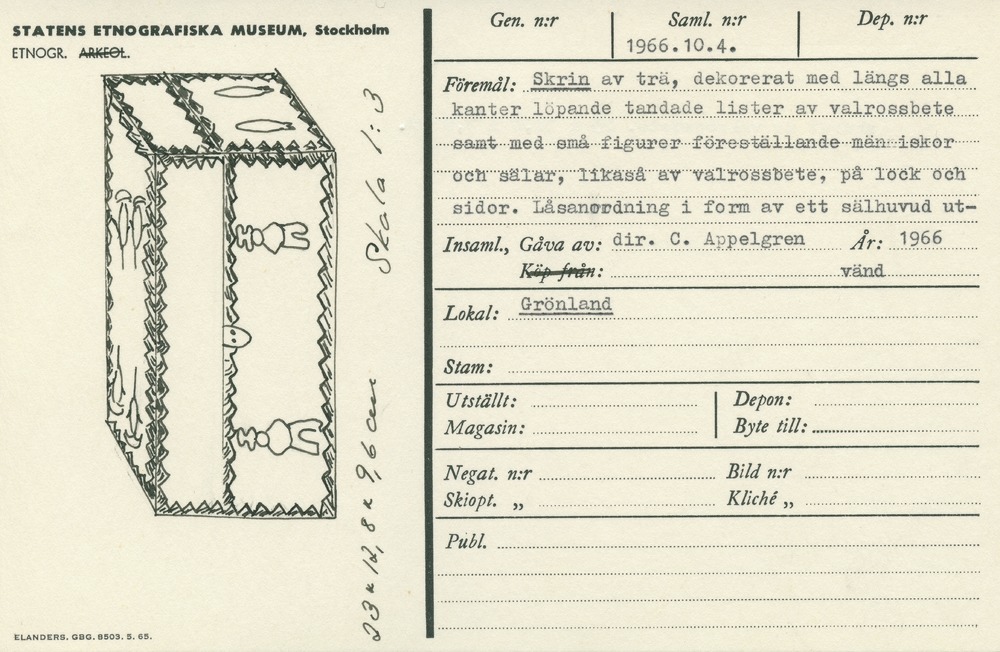 STATENS ETNOGRAFISKA MUSEUM, Stockholm
ETNOGR. ARKEOL.
Skala 1:3
23 x 12,8 x 9,6 cm
ELANDERS. GBG. 8503. 5. 65.
Gen. n:r Saml. n:r Dep. n:r
1966.10.4.
Föremål: Skrin av trä, dekorerat med längs alla
kanter löpande tandade lister av valrossbete
samt med små figurer föreställande män iskor
och sälar, likaså av valrossbete, på lock och
sidor. Låsanordning i form av ett sälhuvud ut-
Insaml., Gåva av: dir. C. Appelgren År: 1966
Köp från: vänd
Lokal: Grönland
Stam:
Utställt: Depon:
Magasin: Byte till:
Negat. n:r Bild n:r
Skiopt. „ Kliché „
Publ.